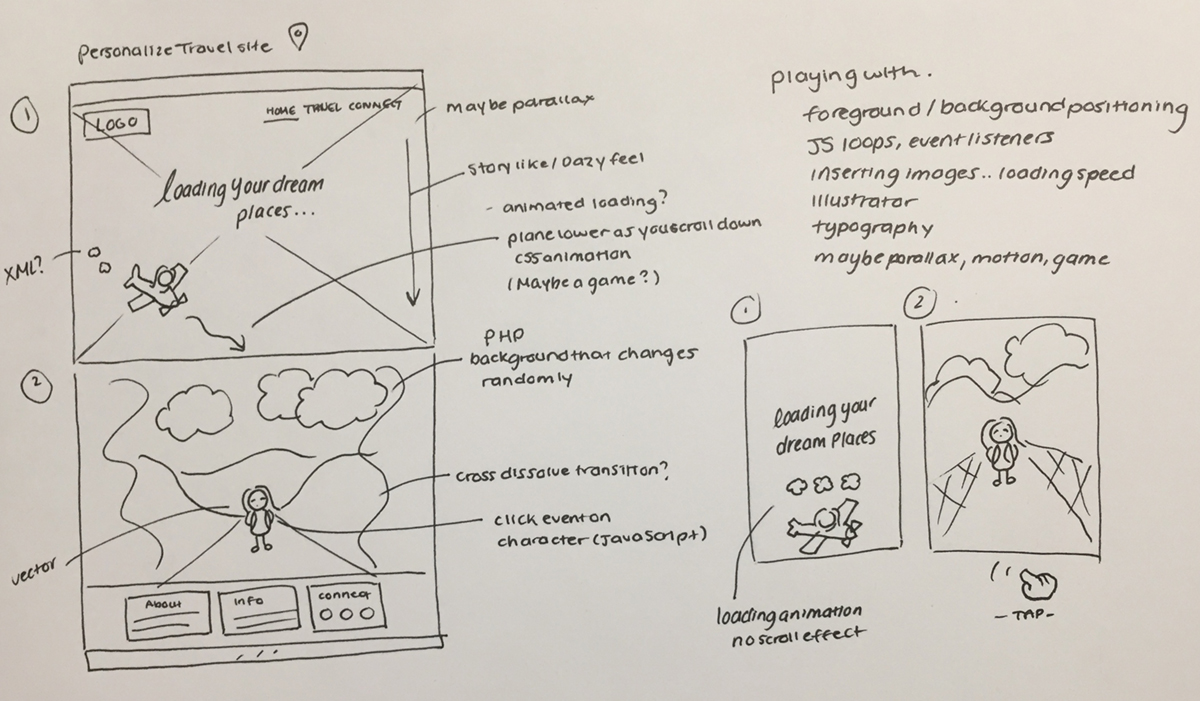 Personalize Travel site
1
LOGO
HOME TRUEL CONNECT
Loading your dream
places...
XML?
maybe parallax
story like / Dazy feel
- animated loading?
plane lower as you scroll down
css animation
(Maybe a game?)
2
PHP
background that changes
randomly
cross dissolve transition?
click event on
character (JavaScript)
vector
About
info
connect
playing with.
foreground / background positioning
JS loops, event listeners
inserting images.. loading speed
illustrator
typography
maybe parallax, motion, game
1
loading your
dream places
loading animation
no scroll effect
2
- TAP -